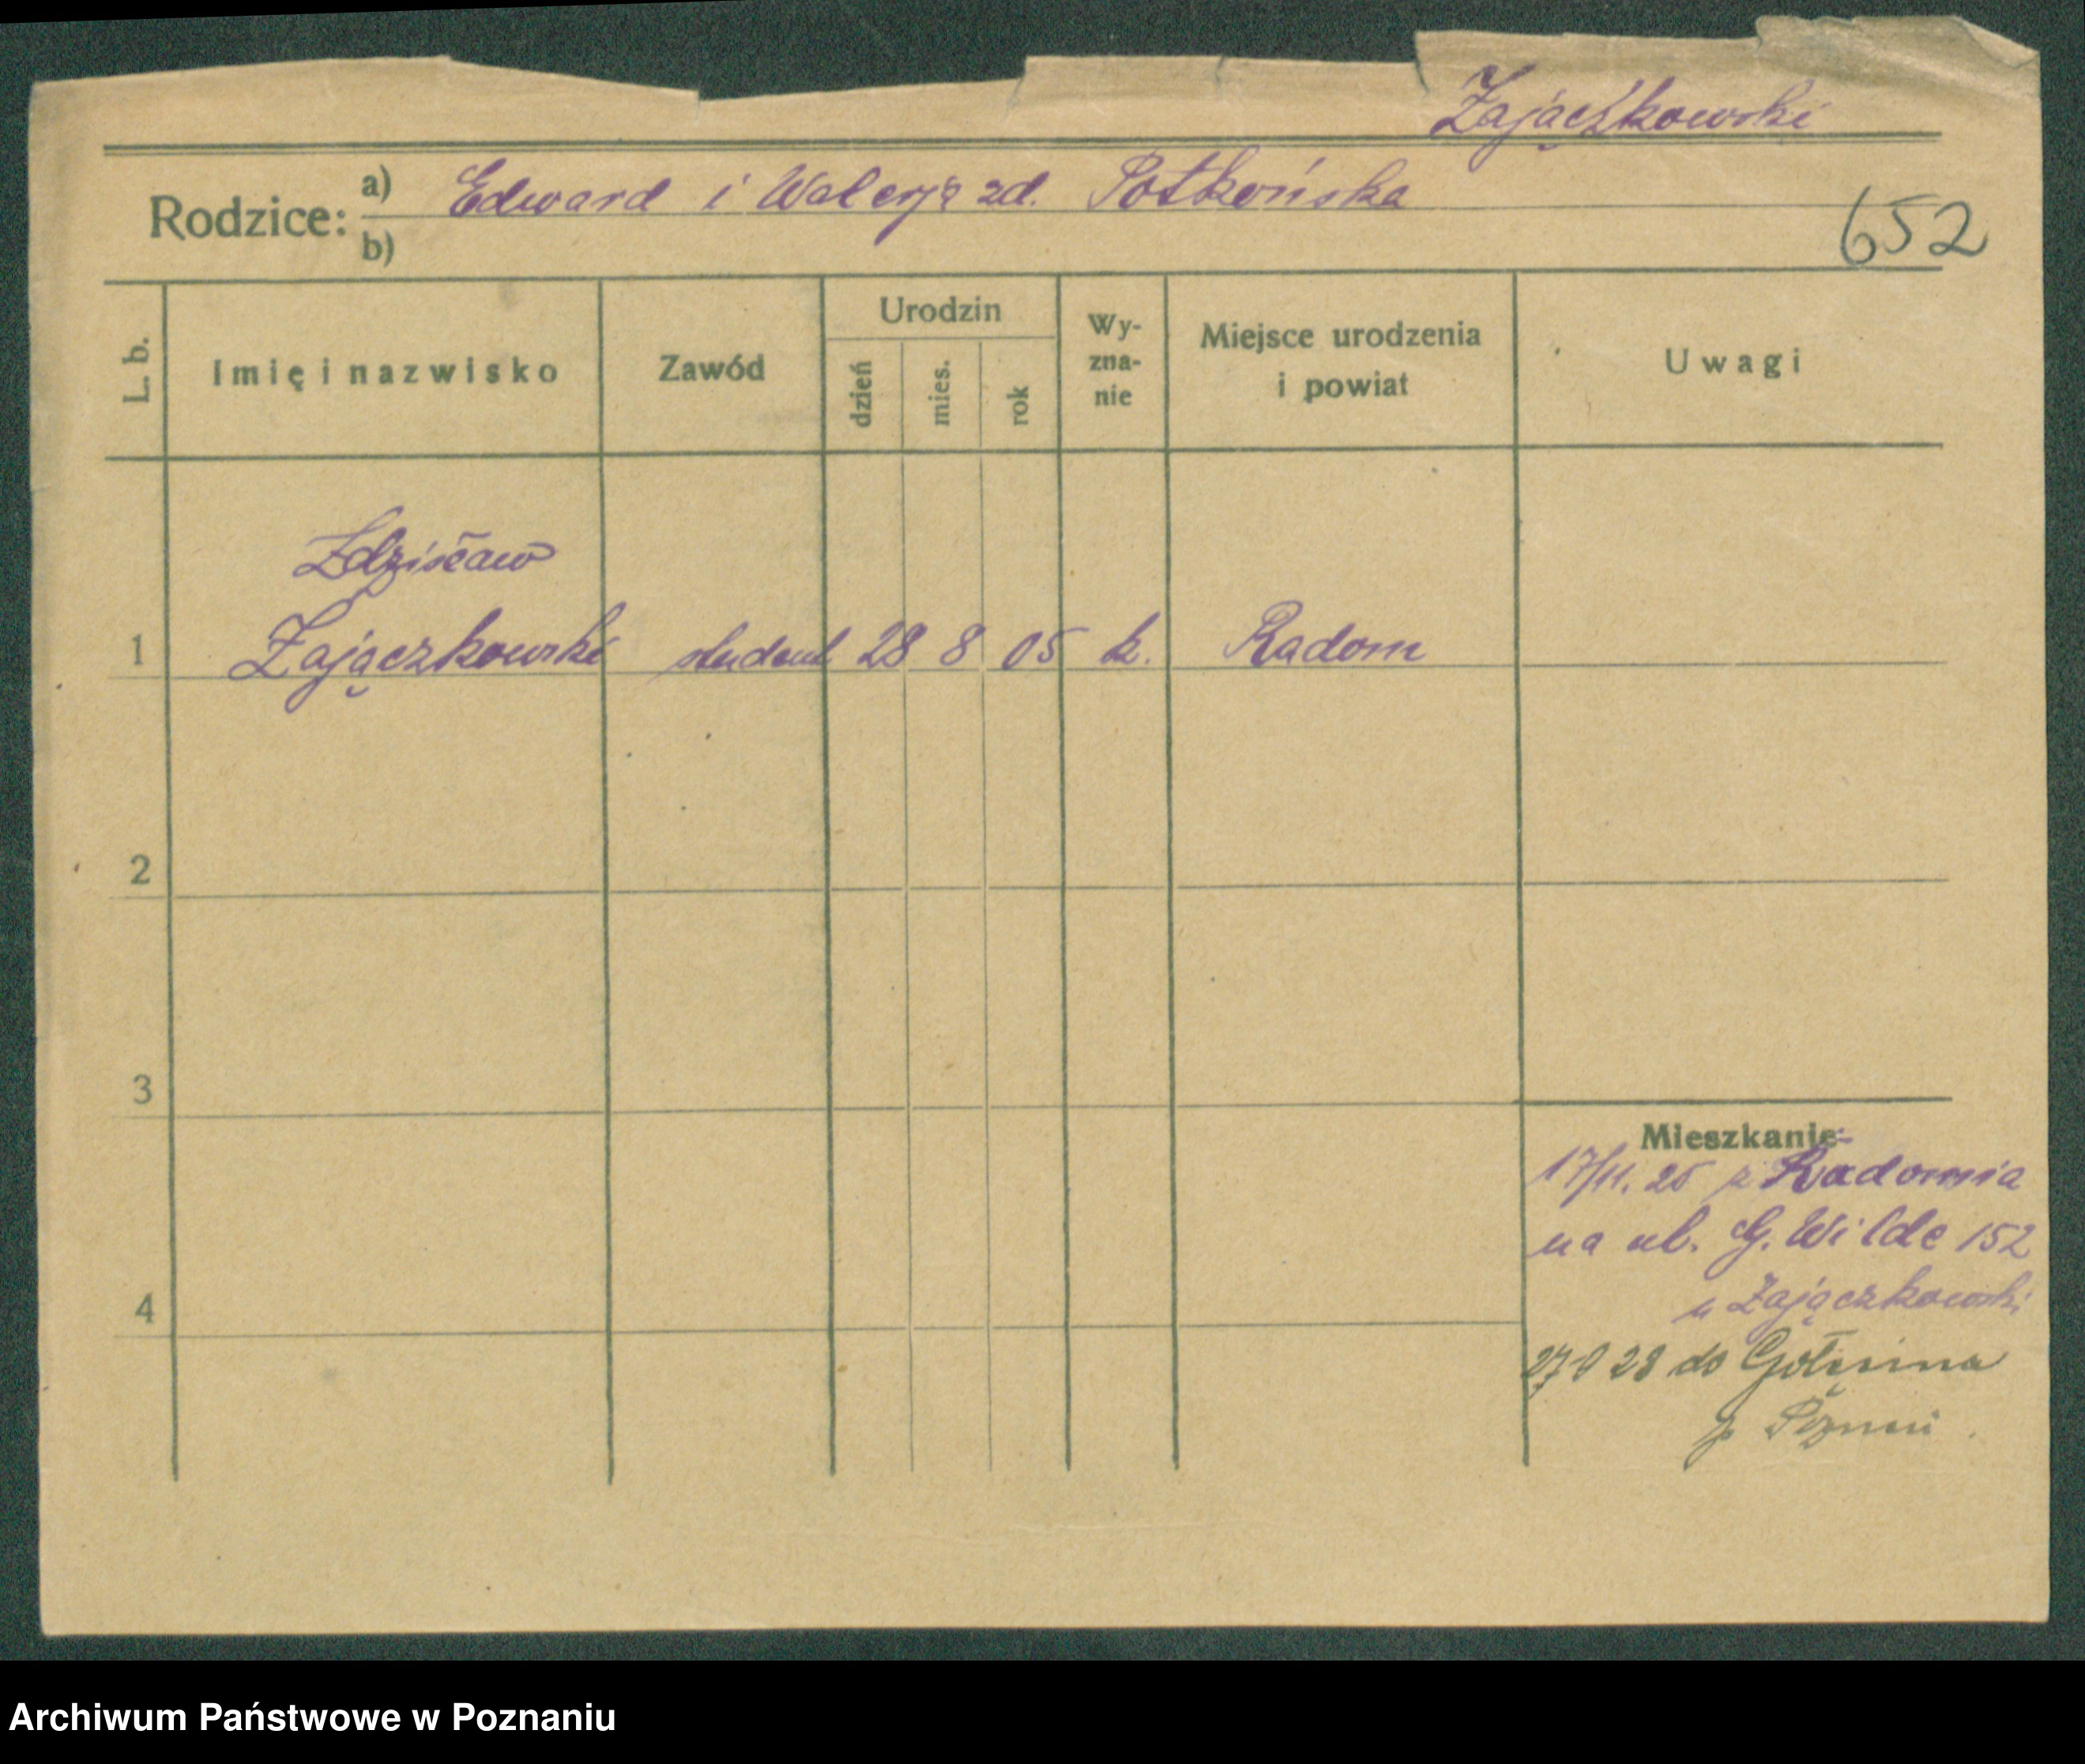 Zajączkowski
Rodzice: a) Edward i Walerja zd.
b)
652
L. b.
Imię i nazwisko
Zawód
Urodzin
dzień
mies.
rok
Wy-
zna-
nie
Miejsce urodzenia
i powiat
Uwagi
Zdzisław
1 Zajączkowski student 28 8 05 k. Radom
2
3
4
Mieszkanie
17/11. 25 z Radomia
na ul. G. Wilde 152
u Zajączkowski
28 do Golęcina
p. Poznań
Archiwum Państwowe w Poznaniu